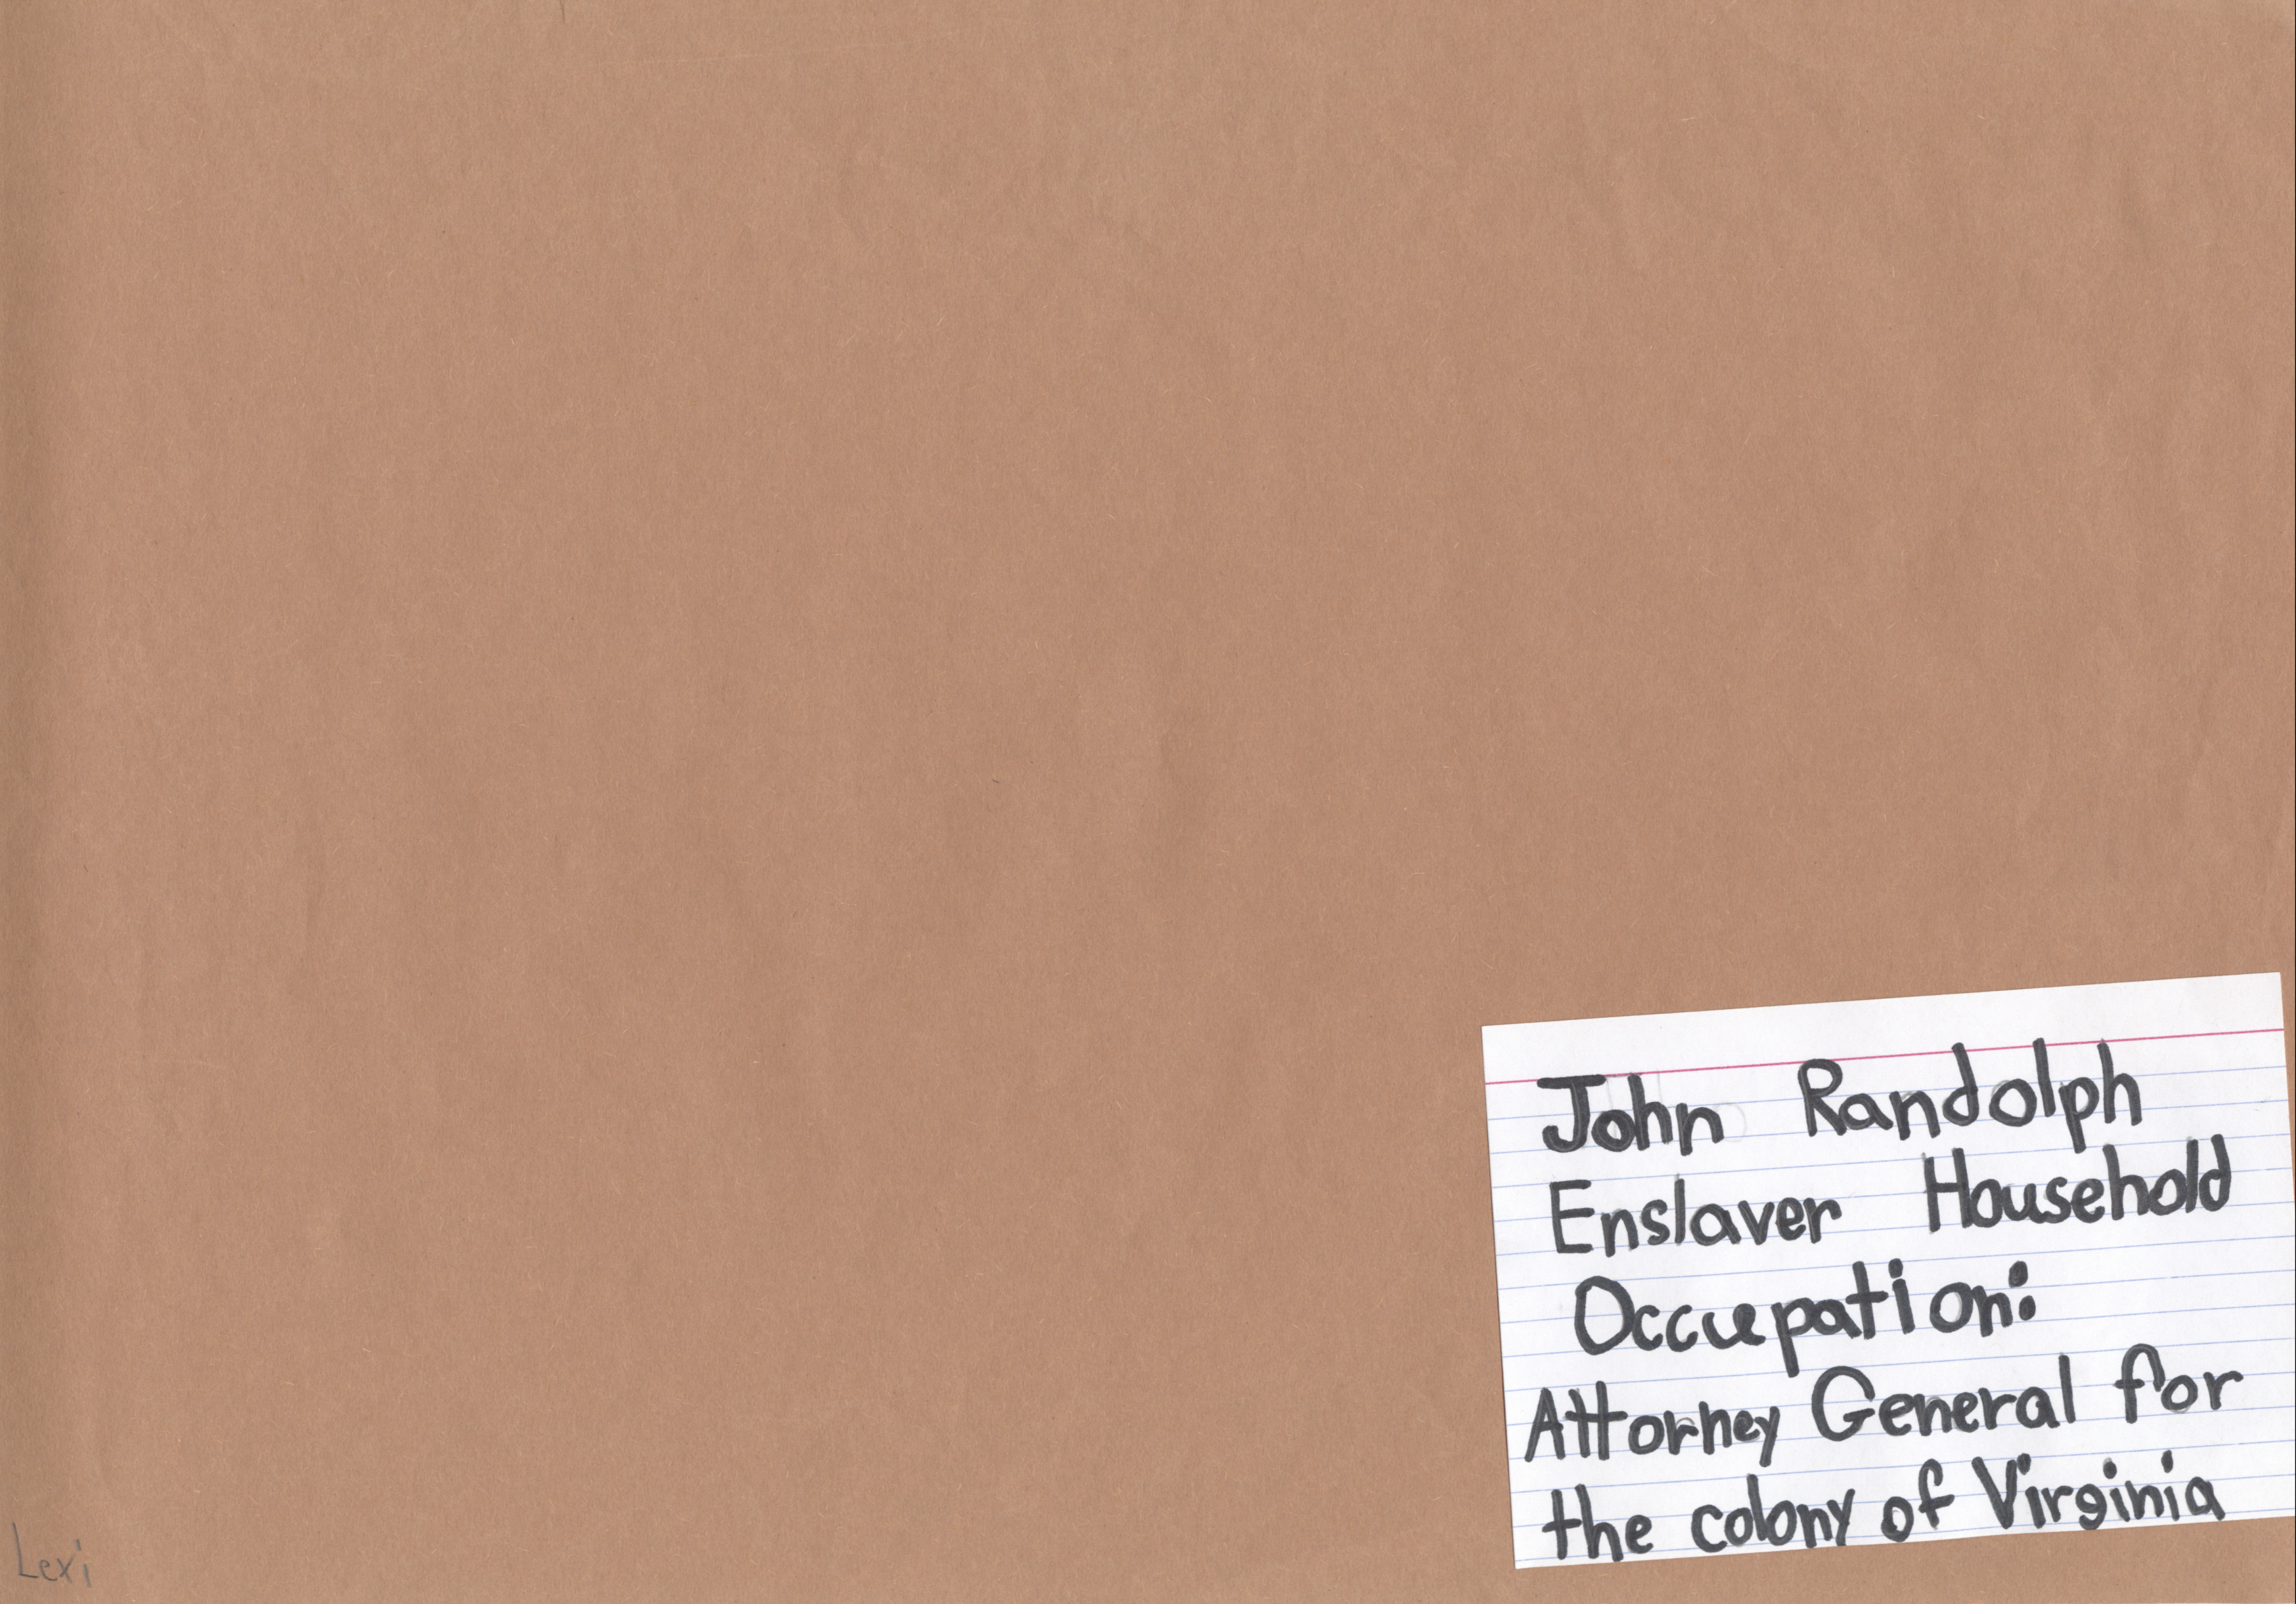 John Randolph
Enslaver Household
Occupation:
Attorney General for
the colony of Virginia
Lexi